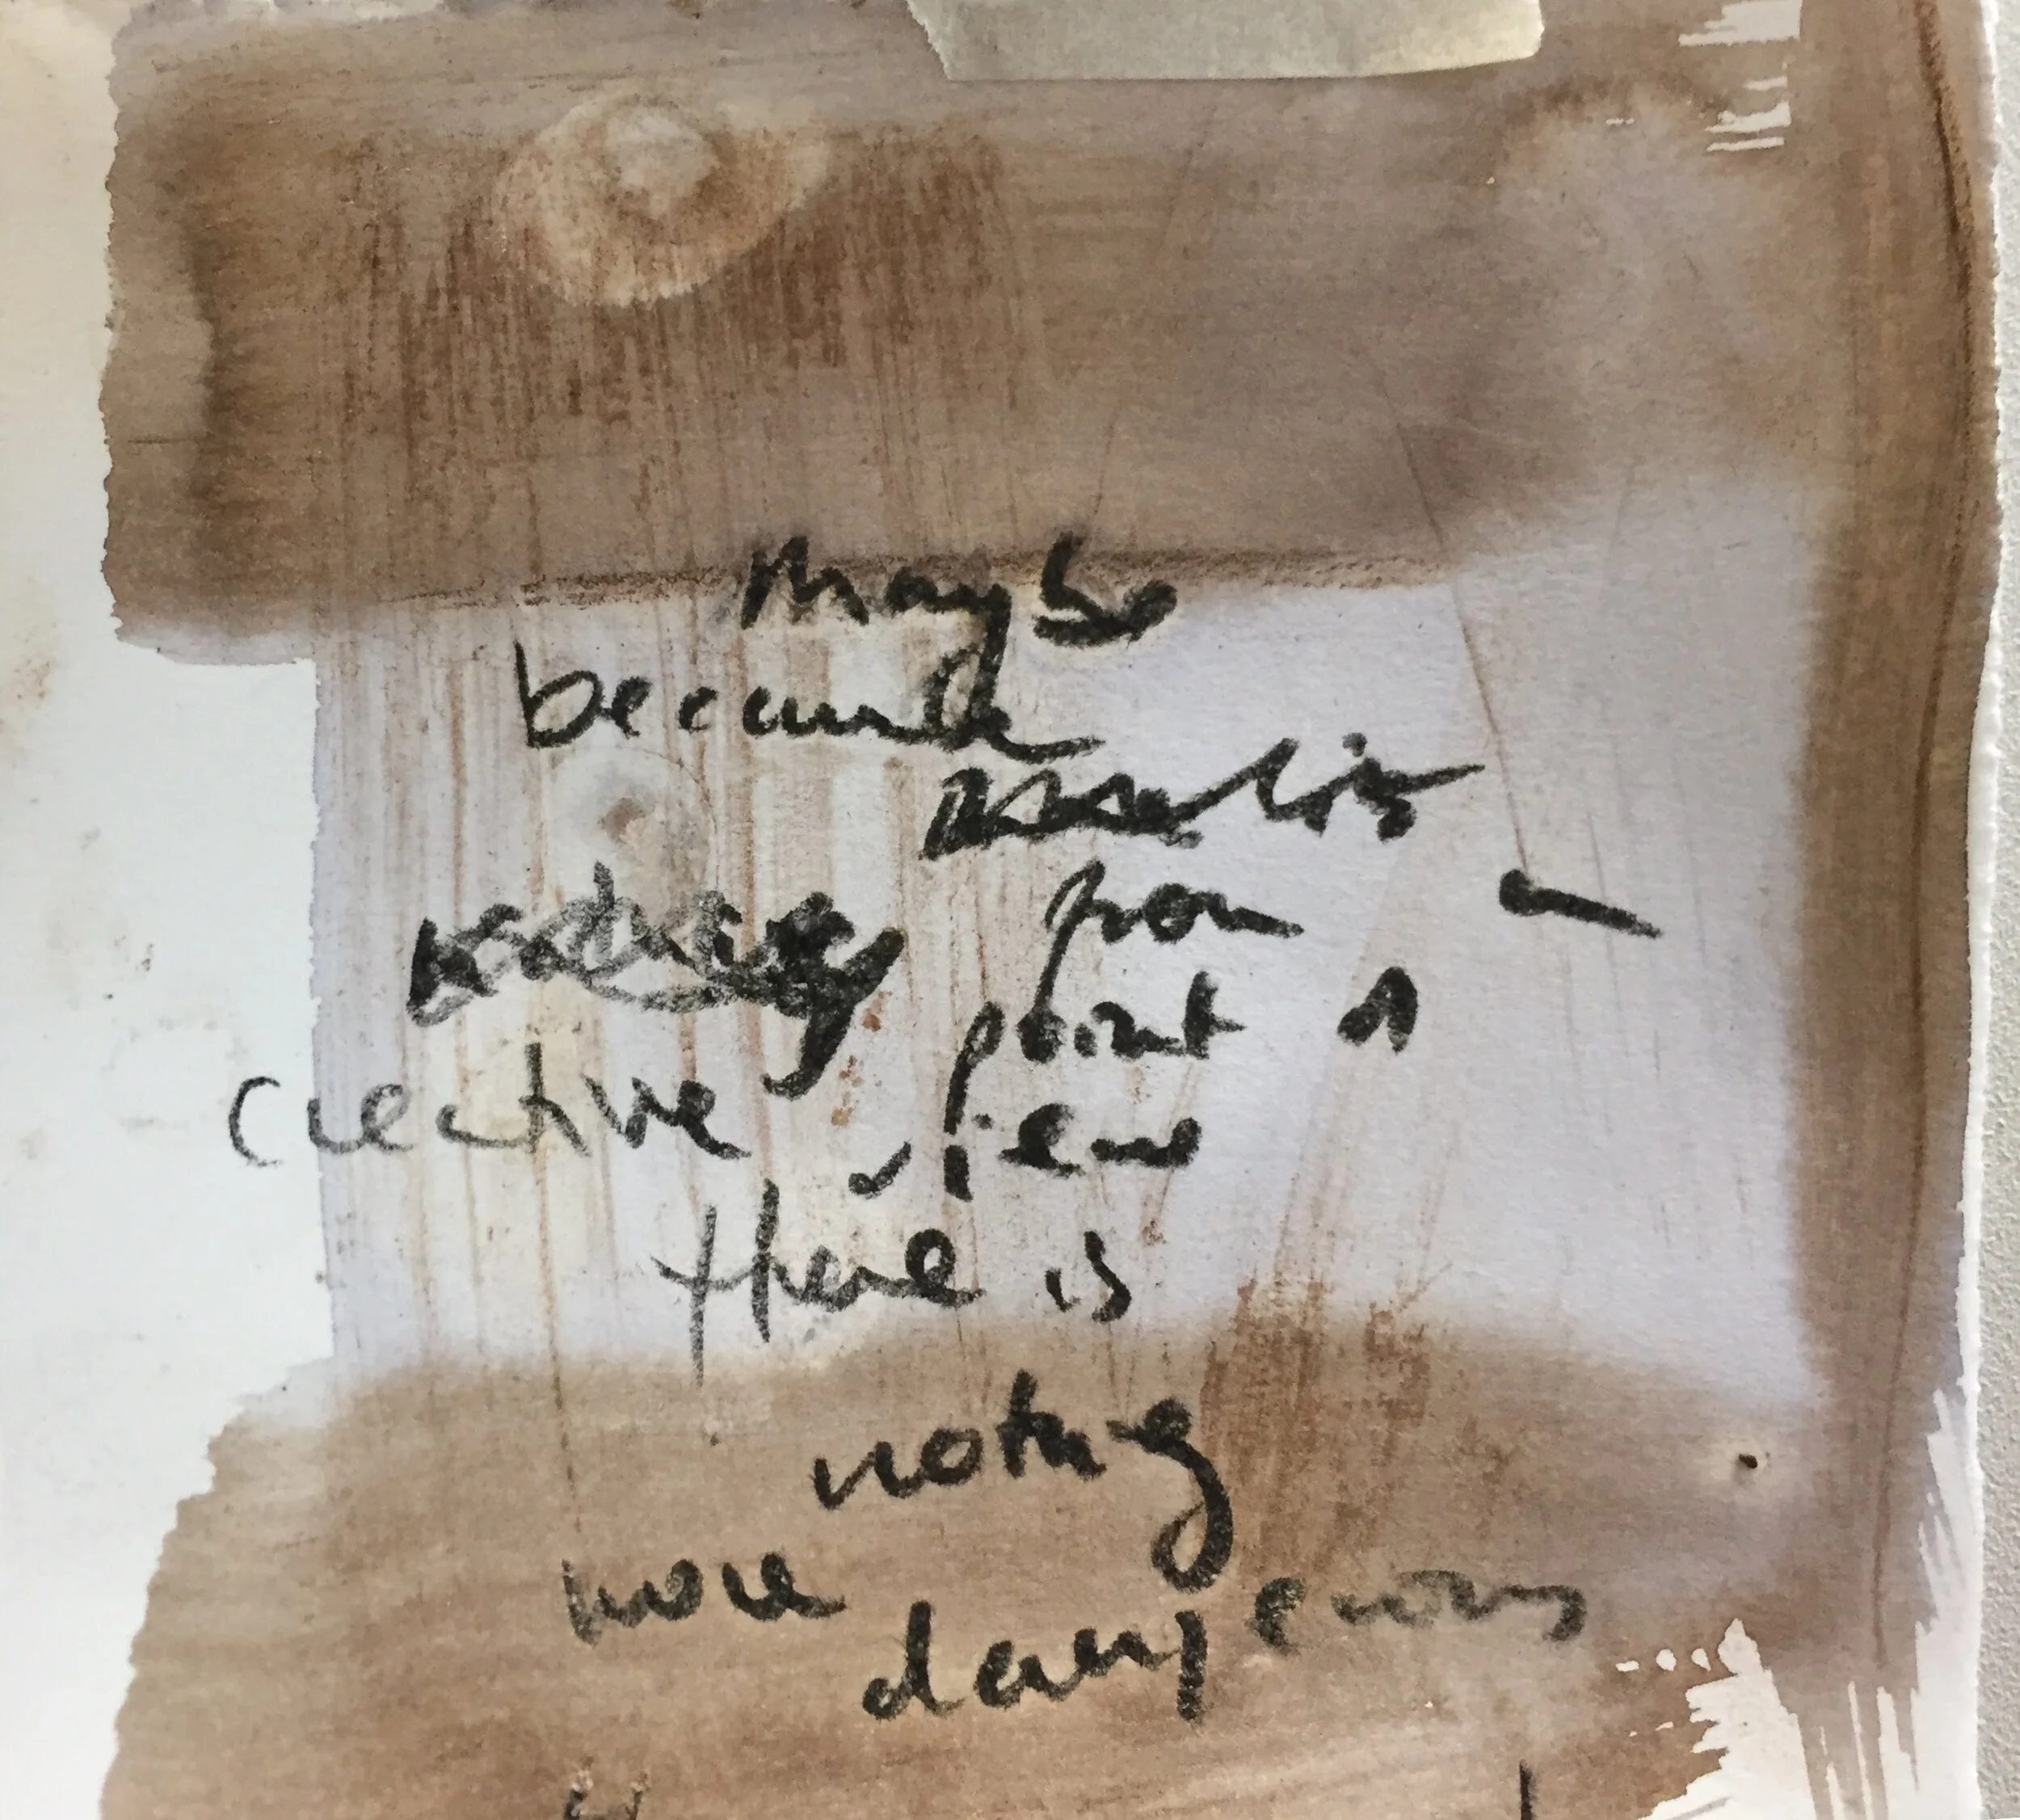 Maybe
because
from a
point of
creative view
there is
nothing
more
dangerous